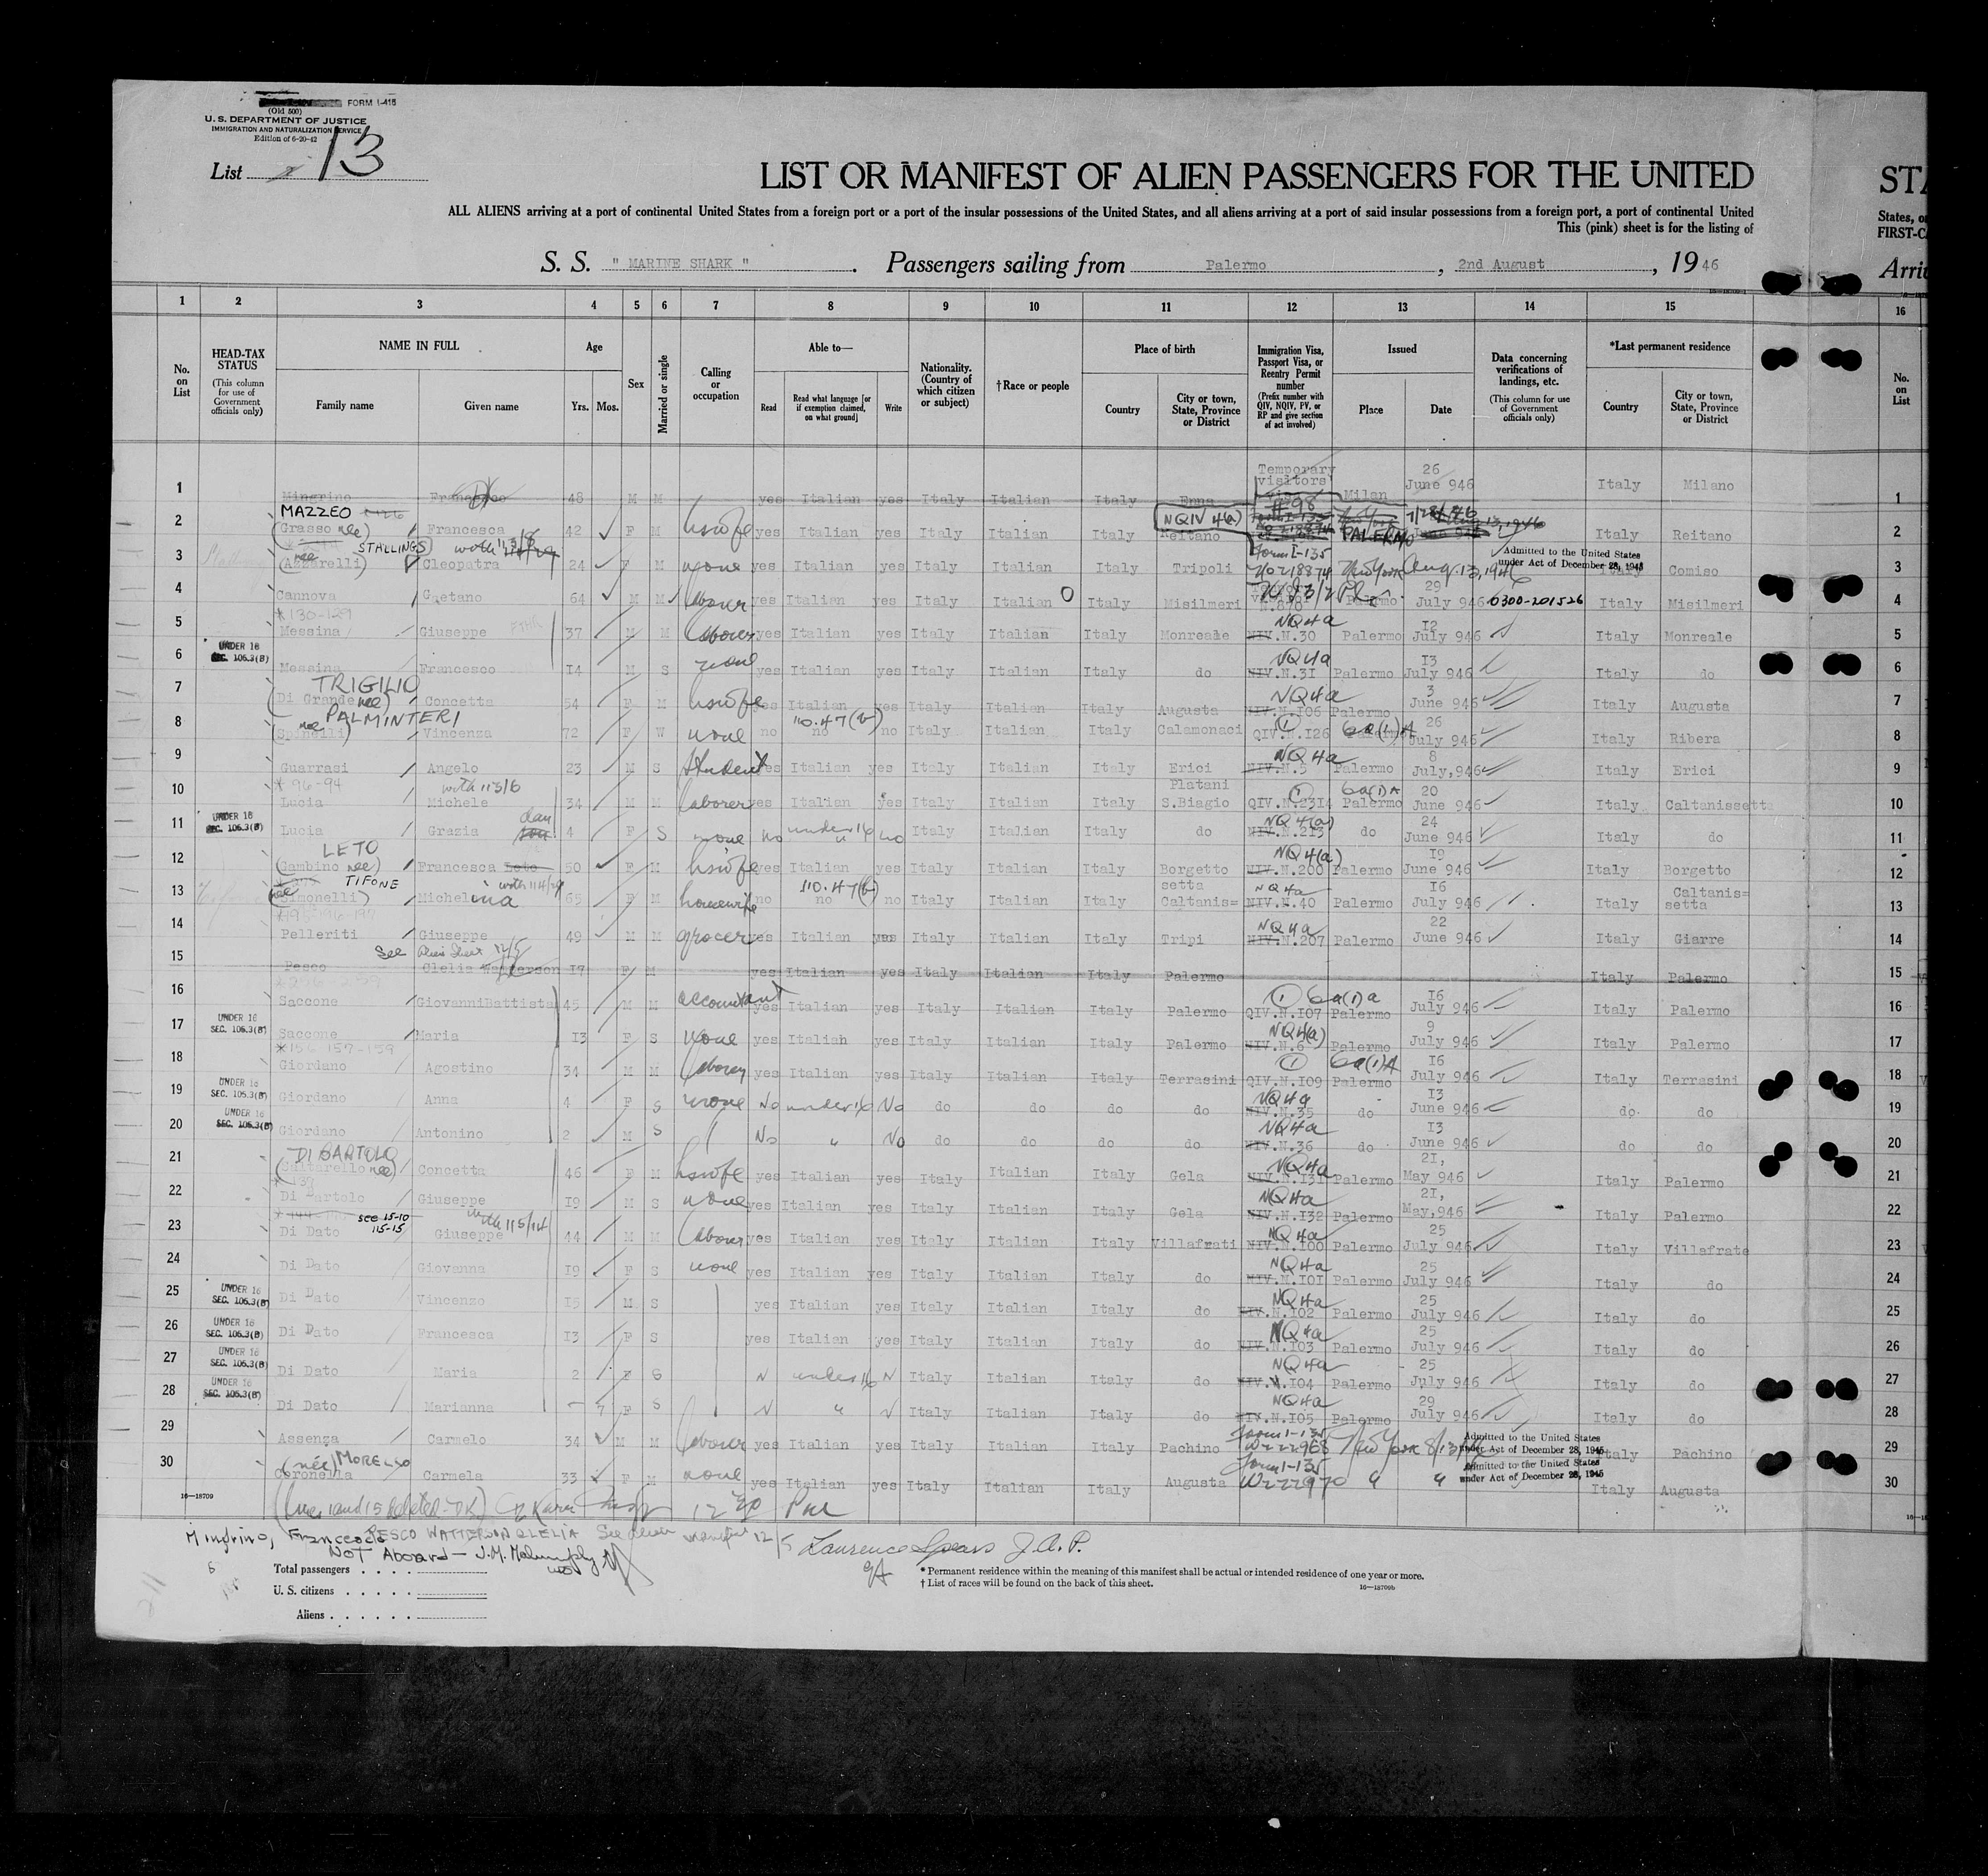 FORM I-415
(Old 500)
U. S. DEPARTMENT OF JUSTICE
IMMIGRATION AND NATURALIZATION SERVICE
Edition of 6-20-42
List 13
LIST OR MANIFEST OF ALIEN PASSENGERS FOR THE UNITED
STA
ALL ALIENS arriving at a port of continental United States from a foreign port or a port of the insular possessions of the United States, and all aliens arriving at a port of said insular possessions from a foreign port, a port of continental United
States, o
This (pink) sheet is for the listing of
FIRST-CA
S. S. " MARINE SHARK " . Passengers sailing from Palermo , 2nd August , 19 46
Arri
1 2 3 4 5 6 7 8 9 10 11 12 13 14 15 16
No. on List
HEAD-TAX STATUS (This column for use of Government officials only)
NAME IN FULL Family name Given name
Age Yrs. Mos.
Sex
Married or single
Calling or occupation
Able to— Read Read what language [or if exemption claimed, on what ground] Write
Nationality. (Country of which citizen or subject)
†Race or people
Place of birth Country City or town, State, Province or District
Immigration Visa, Passport Visa, or Reentry Permit number (Prefix number with QIV, NQIV, PV, or RP and give section of act involved)
Issued Place Date
Data concerning verifications of landings, etc. (This column for use of Government officials only)
*Last permanent residence Country City or town, State, Province or District
No. on List
1 Mingrino Francesco 48 M M yes Italian yes Italy Italian Italy Enna Temporary visitors visa Milan 26 June 946 Italy Milano 1
2 MAZZEO (Grasso nee) Francesca 42 F M hswfe yes Italian yes Italy Italian Italy Reitano NQIV 4(a) #98 PALERMO Italy Reitano 2
3 STALLINGS nee (Azzarelli) Cleopatra 24 F M none yes Italian yes Italy Italian Italy Tripoli Form I-135 No 218874 New York Aug. 13, 1946 Admitted to the United States under Act of December 28, 1945 Italy Comiso 3
4 Cannova Gaetano 64 M M laborer yes Italian yes Italy Italian Italy Misilmeri Palermo 29 July 946 0300-201526 Italy Misilmeri 4
5 Messina Giuseppe 37 M M laborer yes Italian yes Italy Italian Italy Monreale NQ4a NIV.N.30 Palermo 12 July 946 Italy Monreale 5
6 UNDER 16 SEC. 105.3(B) Messina Francesco 14 M S none yes Italian yes Italy Italian Italy do NQ4a NIV.N.31 Palermo 13 July 946 Italy do 6
7 TRIGILIO (Di Grande nee) Concetta 54 F M hswfe yes Italian yes Italy Italian Italy Augusta NQ4a NIV.N.106 Palermo 3 June 946 Italy Augusta 7
8 nee PALMINTERI (Spinelli) Vincenza 72 F W none no 110.47(b) no no Italy Italian Italy Calamonaci QIV.N.126 6a(1)A Palermo 26 July 946 Italy Ribera 8
9 Guarrasi Angelo 23 M S student yes Italian yes Italy Italian Italy Erici NQ4a NIV.N.5 Palermo 8 July,946 Italy Erici 9
10 Lucia Michele with 113/6 34 M M laborer yes Italian yes Italy Italian Italy Platani S.Biagio QIV.N.2314 6a(1)A Palermo 20 June 946 Italy Caltanissetta 10
11 UNDER 16 SEC. 105.3(B) Lucia Grazia dau 4 F S none no under 16 no Italy Italian Italy do NQ4(a) NIV.N.213 do 24 June 946 Italy do 11
12 LETO (Gambino nee) Francesca Leto 50 F M hswfe yes Italian yes Italy Italian Italy Borgetto NQ4(a) NIV.N.200 Palermo 19 June 946 Italy Borgetto 12
13 nee TIFONE (Simonelli) Michelina 65 F M housewife no 110.47(b) no no Italy Italian Italy Caltanis= setta NQ4a NIV.N.40 Palermo 16 July 946 Italy Caltanis= setta 13
14 Pelleriti Giuseppe 49 M M grocer yes Italian yes Italy Italian Italy Tripi NQ4a NIV.N.207 Palermo 22 June 946 Italy Giarre 14
15 See Alien Sheet 12/5 Pesco Clelia Watterson 17 F M yes Italian yes Italy Italian Italy Palermo Italy Palermo 15
16 Saccone GiovanniBattista 45 M M accountant yes Italian yes Italy Italian Italy Palermo QIV.N.107 6a(1)a Palermo 16 July 946 Italy Palermo 16
17 UNDER 16 SEC. 105.3(B) Saccone Maria 13 F S none yes Italian yes Italy Italian Italy Palermo NQ4(a) NIV.N.6 Palermo 9 July 946 Italy Palermo 17
18 *156 157-159 Giordano Agostino 34 M M laborer yes Italian yes Italy Italian Italy Terrasini QIV.N.109 6a(1)A Palermo 16 July 946 Italy Terrasini 18
19 UNDER 16 SEC. 105.3(B) Giordano Anna 4 F S none No under 16 No do do do do NQ4a NIV.N.35 do 13 June 946 do do 19
20 UNDER 16 SEC. 105.3(B) Giordano Antonino 2 M S No " No do do do do NQ4a NIV.N.36 do 13 June 946 do do 20
21 DI BARTOLO (Saltarello nee) Concetta 46 F M hswfe yes Italian yes Italy Italian Italy Gela NQ4a NIV.N.131 Palermo 21, May 946 Italy Palermo 21
22 Di Bartolo Giuseppe 19 M S none yes Italian yes Italy Italian Italy Gela NQ4a NIV.N.132 Palermo 21, May,946 Italy Palermo 22
23 see 15-10 115-15 Di Dato Giuseppe with 115/14 44 M M laborer yes Italian yes Italy Italian Italy Villafrati NQ4a NIV.N.100 Palermo 25 July 946 Italy Villafrate 23
24 Di Dato Giovanna 19 F S none yes Italian yes Italy Italian Italy do NQ4a NIV.N.101 Palermo 25 July 946 Italy do 24
25 UNDER 16 SEC. 105.3(B) Di Dato Vincenzo 15 M S yes Italian yes Italy Italian Italy do NQ4a NIV.N.102 Palermo 25 July 946 Italy do 25
26 UNDER 16 SEC. 105.3(B) Di Dato Francesca 13 F S yes Italian yes Italy Italian Italy do NQ4a NIV.N.103 Palermo 25 July 946 Italy do 26
27 UNDER 16 SEC. 105.3(B) Di Dato Maria 2 F S N under 16 N Italy Italian Italy do NQ4a NIV.N.104 Palermo 25 July 946 Italy do 27
28 UNDER 16 SEC. 105.3(B) Di Dato Marianna - 7 F S N " N Italy Italian Italy do NQ4a NIV.N.105 Palermo 29 July 946 Italy do 28
29 Assenza Carmelo 34 M M laborer yes Italian yes Italy Italian Italy Pachino Form I-135 W222968 New York 8/13/46 Admitted to the United States under Act of December 28, 1945 Italy Pachino 29
30 (neé) MORELLO Coronella Carmela 33 F M none yes Italian yes Italy Italian Italy Augusta Form I-135 W222970 " " Admitted to the United States under Act of December 28, 1945 Italy Augusta 30
16—18709
(lines 1 and 15 deleted-DK) 12 30 PM
Mingrino, Francesco PESCO WATTERSON CLELIA See Alien manifest 12/5 Laurence Spears J.A.P.
NOT Aboard —
Total passengers
U. S. citizens
Aliens
* Permanent residence within the meaning of this manifest shall be actual or intended residence of one year or more.
† List of races will be found on the back of this sheet.
16—18709b